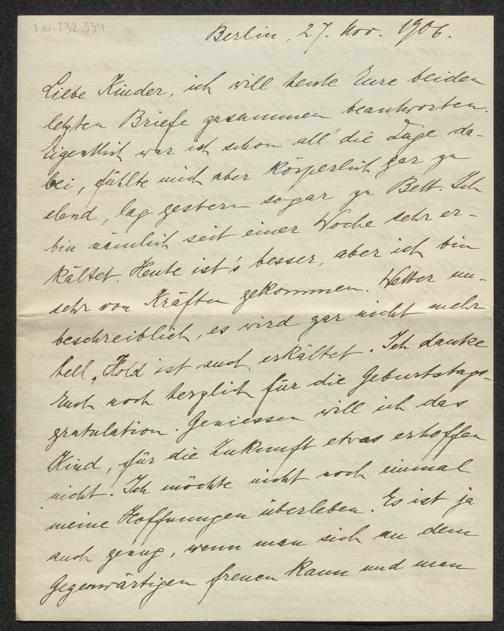 I.N. 132.334
Berlin, 27. Nov. 1906.
Liebe Kinder, ich will heute Eure beiden
letzten Briefe zusammen beantworten.
Eigentlich war ich schon all' die Tage da-
bei, fühlte mich aber körperlich gar zu
elend, lag gestern sogar zu Bett. Ich
bin nämlich seit einer Woche sehr er-
kältet. Heute ist's besser, aber ich bin
sehr von Kräften gekommen. Wetter un-
beschreiblich, es wird gar nicht mehr
hell, ist auch erkältet. Ich danke
Euch noch herzlich für die Geburtstags-
gratulation. Geniessen will ich das
Kind, für die Zukunft etwas erhoffen
nicht. Ich möchte nicht noch einmal
meine Hoffnungen überleben. Es ist ja
auch genug, wenn man sich an dem
Gegenwärtigen freuen kann und man